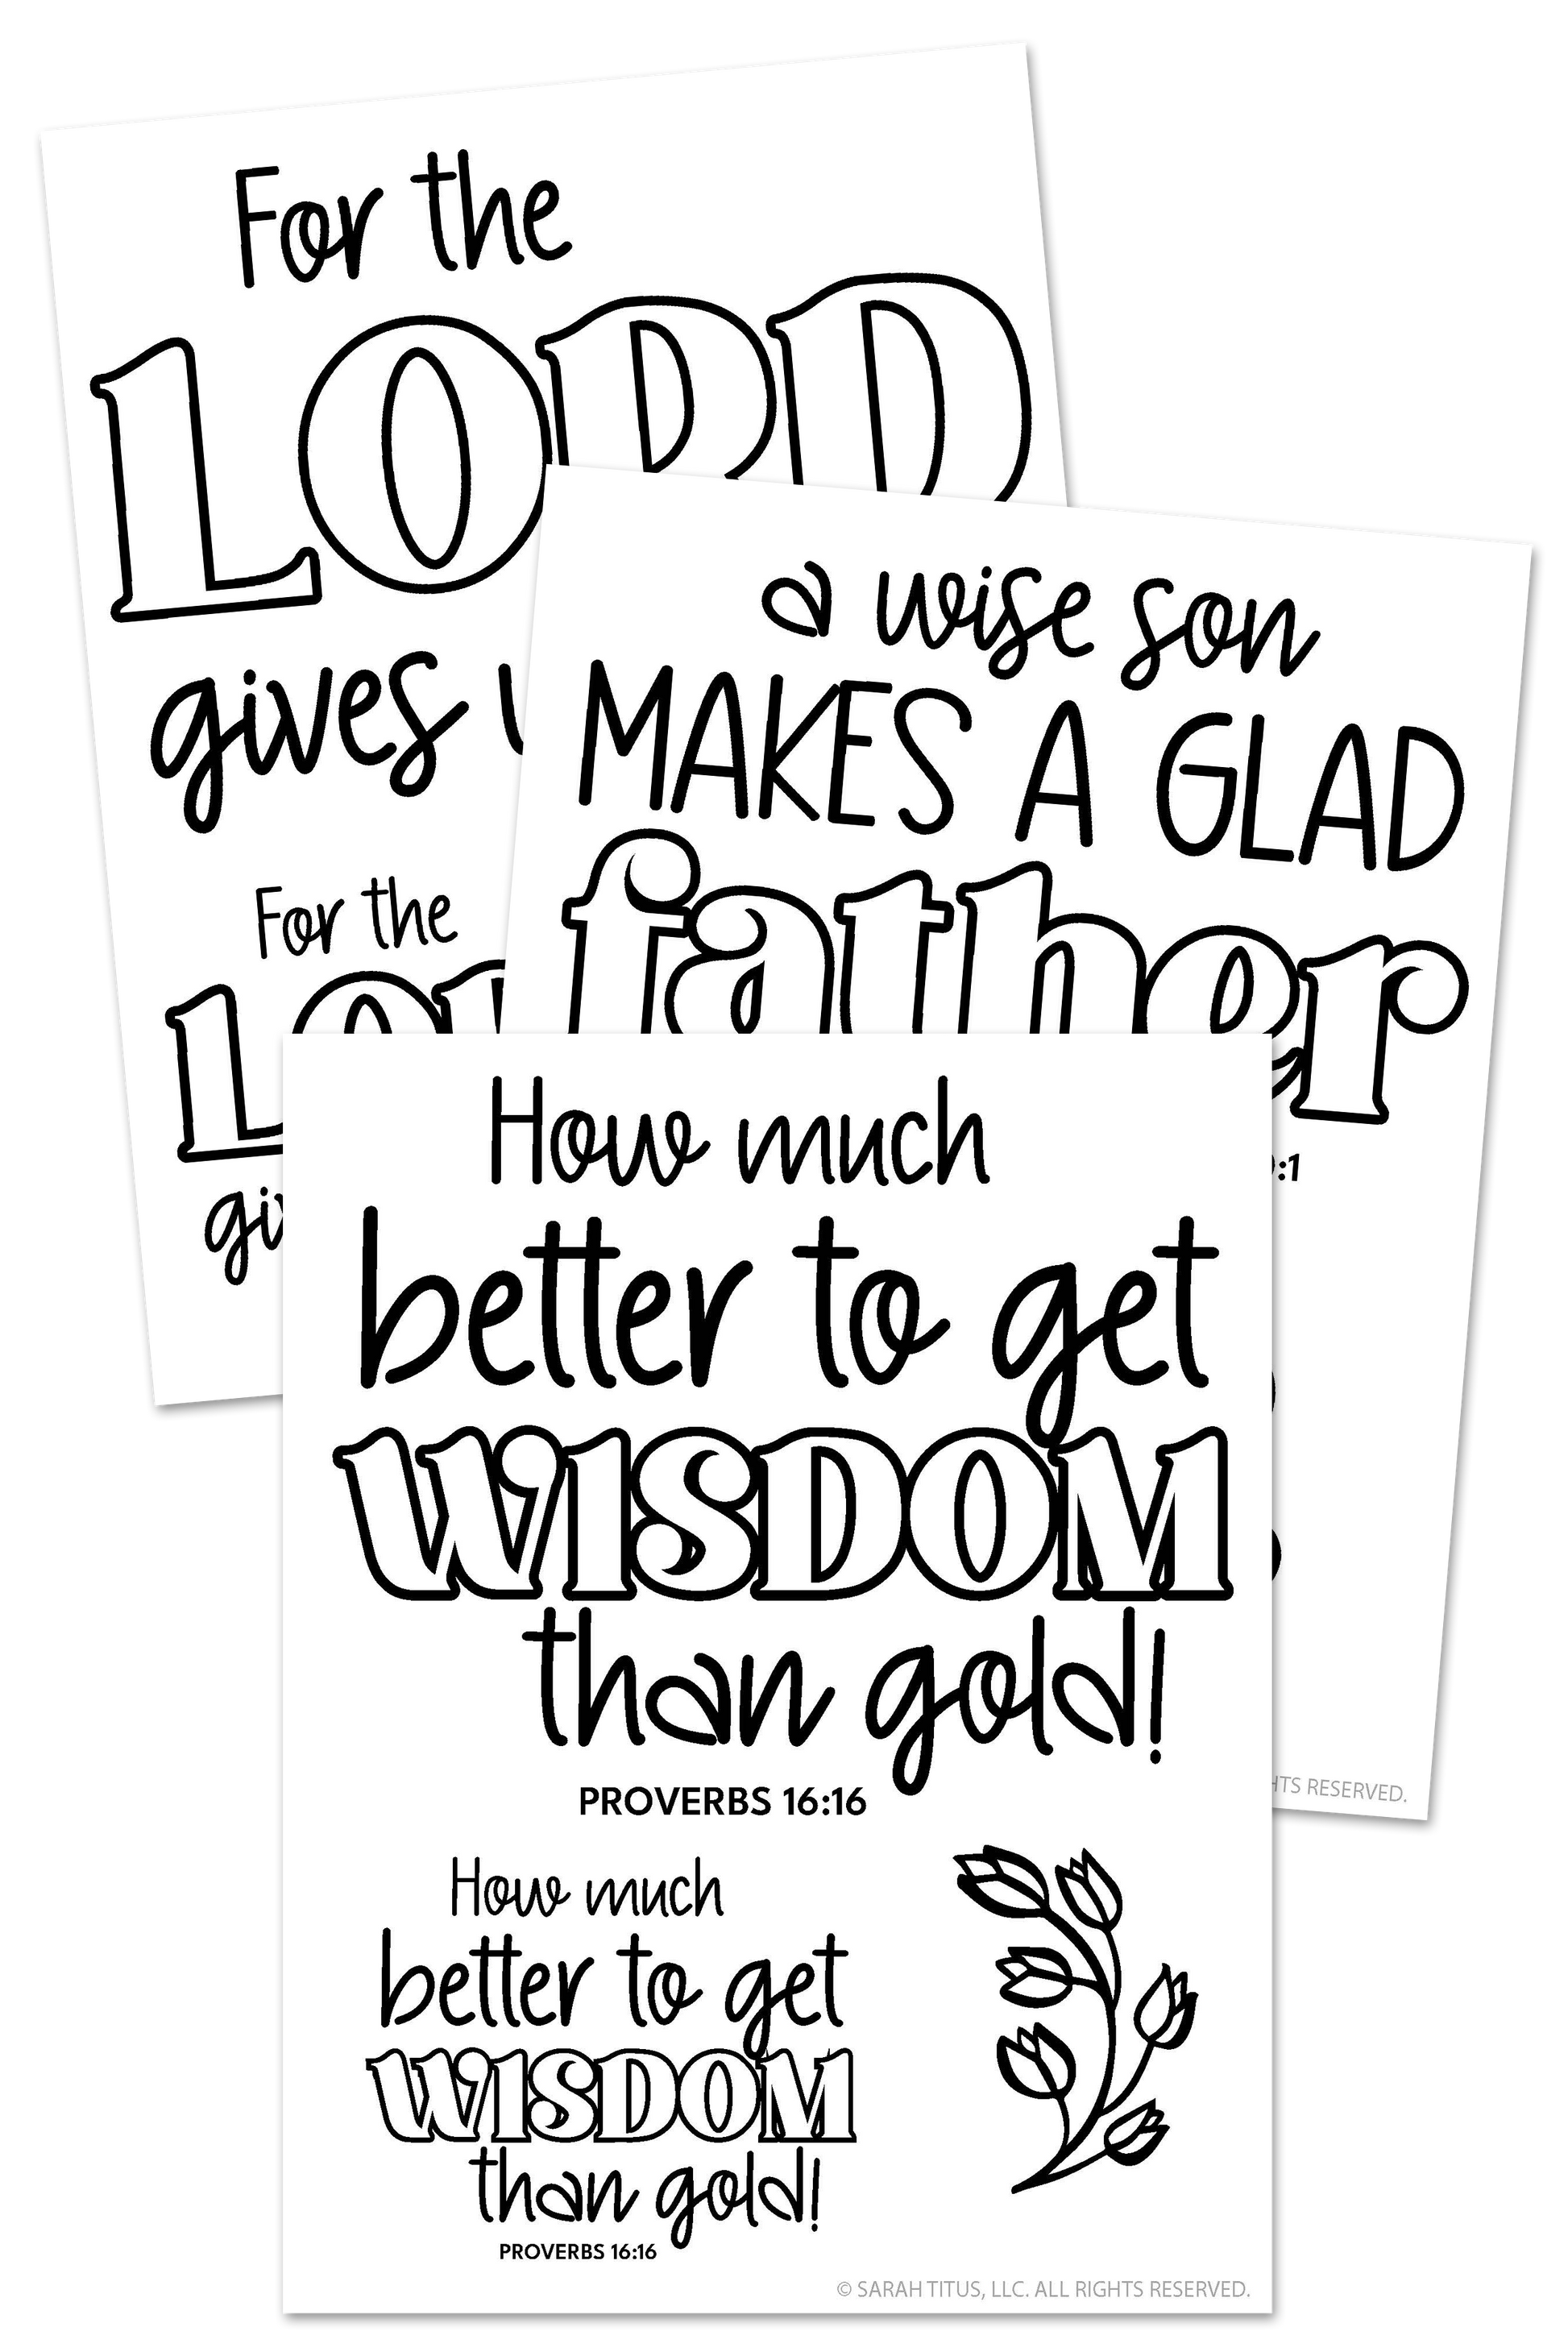 For the
LORD
gives
For the
gi
a wise son
MAKES A GLAD
father
:1
HTS RESERVED.
How much
better to get
WISDOM
than gold!
PROVERBS 16:16
How much
better to get
WISDOM
than gold!
PROVERBS 16:16
© SARAH TITUS, LLC. ALL RIGHTS RESERVED.